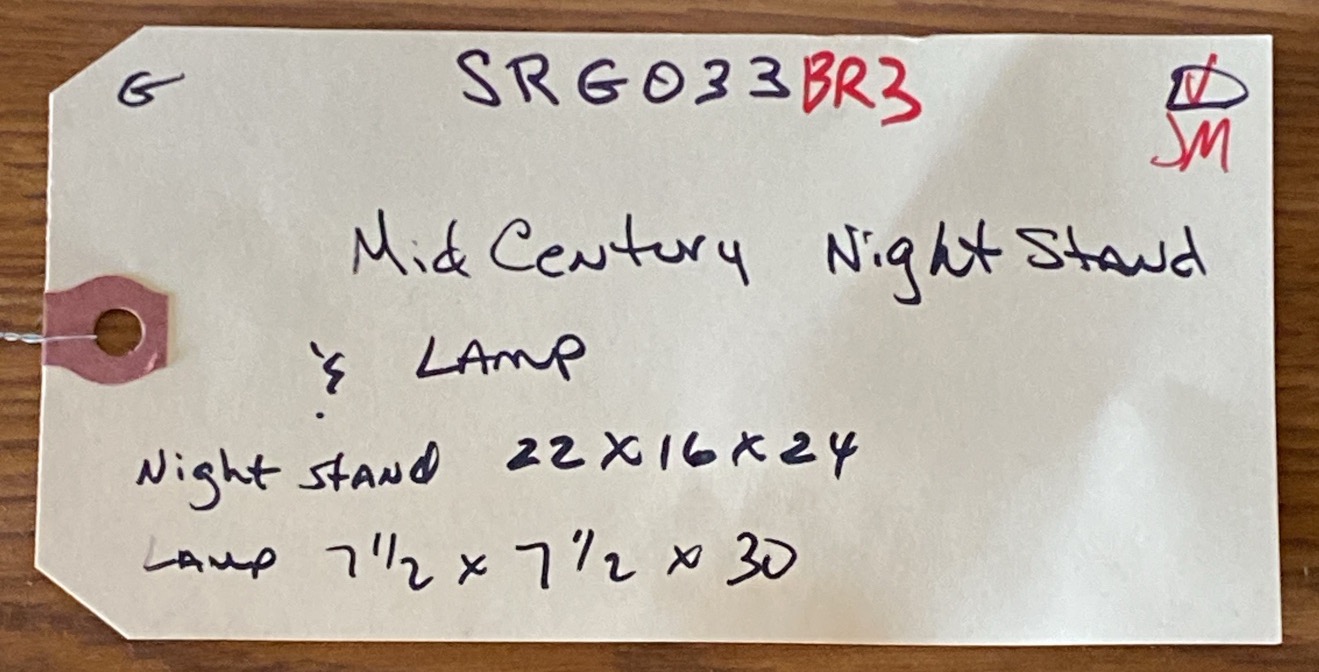 G SRG033BR3
JM
Mid Century Night Stand
& LAMP
Night stand 22 x 16 x 24
LAMP 7 1/2 x 7 1/2 x 30